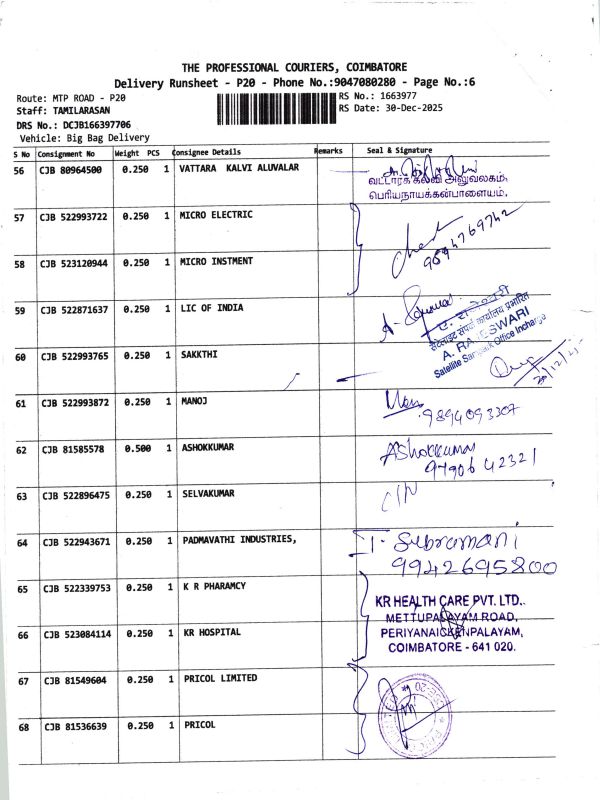 THE PROFESSIONAL COURIERS, COIMBATORE
Delivery Runsheet - P20 - Phone No.:9047080280 - Page No.:6
Route: MTP ROAD - P20
RS No.: 1663977
Staff: TAMILARASAN
RS Date: 30-Dec-2025
DRS No.: DCJB166397706
Vehicle: Big Bag Delivery
S No Consignment No Weight PCS Consignee Details Remarks Seal & Signature
56 CJB 80964500 0.250 1 VATTARA KALVI ALUVALAR
வட்டாரக் கல்வி அலுவலகம்,
பெரியநாயக்கன்பாளையம்.
57 CJB 522993722 0.250 1 MICRO ELECTRIC
9894769742
58 CJB 523120944 0.250 1 MICRO INSTMENT
59 CJB 522871637 0.250 1 LIC OF INDIA
A. RAJESWARI
Satellite Sampark Office Incharge
60 CJB 522993765 0.250 1 SAKKTHI
61 CJB 522993872 0.250 1 MANOJ
9894093307
62 CJB 81585578 0.500 1 ASHOKKUMAR Ashokkumar
9790642321
63 CJB 522896475 0.250 1 SELVAKUMAR
64 CJB 522943671 0.250 1 PADMAVATHI INDUSTRIES, T. Subramani
9942695800
65 CJB 522339753 0.250 1 K R PHARAMCY
KR HEALTH CARE PVT. LTD.
METTUPALAYAM ROAD,
66 CJB 523084114 0.250 1 KR HOSPITAL PERIYANAICKENPALAYAM,
COIMBATORE - 641 020.
67 CJB 81549604 0.250 1 PRICOL LIMITED
68 CJB 81536639 0.250 1 PRICOL